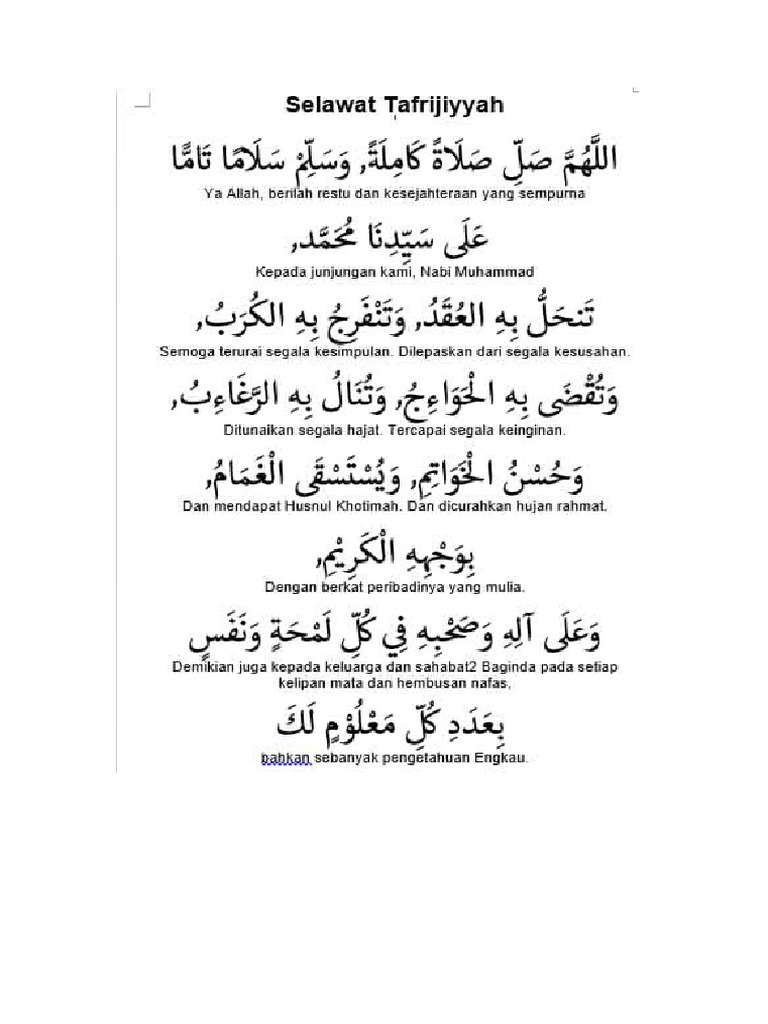 Selawat Tafrijiyyah
اللَّهُمَّ صَلِّ صَلَاةً كَامِلَةً, وَسَلِّمْ سَلَامًا تَامًّا
Ya Allah, berilah restu dan kesejahteraan yang sempurna
عَلَى سَيِّدِنَا مُحَمَّد,
Kepada junjungan kami, Nabi Muhammad
تَنحَلُّ بِهِ العُقَدُ, وَتَنْفَرِجُ بِهِ الكُرَبُ,
Semoga terurai segala kesimpulan. Dilepaskan dari segala kesusahan.
وَتُقْضَى بِهِ الْحَوَاءِجُ, وَتُنَالُ بِهِ الرَّغَاءِبُ,
Ditunaikan segala hajat. Tercapai segala keinginan.
وَحُسْنُ الْخَوَاتِمِ, وَيُسْتَسْقَى الْغَمَامُ,
Dan mendapat Husnul Khotimah. Dan dicurahkan hujan rahmat.
بِوَجْهِهِ الْكَرِيْمِ,
Dengan berkat peribadinya yang mulia.
وَعَلَى آلِهِ وَصَحْبِهِ فِي كُلِّ لَمْحَةٍ وَنَفَسٍ
Demikian juga kepada keluarga dan sahabat2 Baginda pada setiap
kelipan mata dan hembusan nafas,
بِعَدَدِ كُلِّ مَعْلُوْمٍ لَكَ
bahkan sebanyak pengetahuan Engkau.